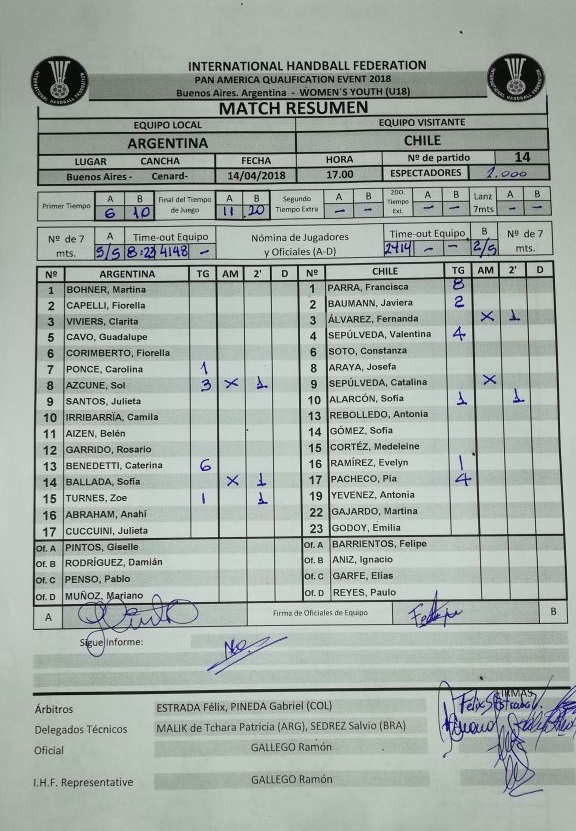 INTERNATIONAL HANDBALL FEDERATION
PAN AMERICA QUALIFICATION EVENT 2018
Buenos Aires. Argentina - WOMEN´S YOUTH (U18)
MATCH RESUMEN
EQUIPO LOCAL EQUIPO VISITANTE
ARGENTINA CHILE
LUGAR CANCHA FECHA HORA Nº de partido 14
Buenos Aires - Cenard- 14/04/2018 17.00 ESPECTADORES 1.000
Primer Tiempo A B Final del Tiempo de Juego A B Segundo Tiempo Extra A B 2DO. Tiempo Ext. A B Lanz 7mts A B
6 10 11 20 - - - - - -
Nº de 7 mts. A Time-out Equipo Nómina de Jugadores y Oficiales (A-D) Time-out Equipo B Nº de 7 mts.
5/5 8:23 4148 - 2414 - - 2/5
Nº ARGENTINA TG AM 2' D Nº CHILE TG AM 2' D
1 BOHNER, Martina 1 PARRA, Francisca 8
2 CAPELLI, Fiorella 2 BAUMANN, Javiera 2
3 VIVIERS, Clarita 3 ÁLVAREZ, Fernanda X 1
5 CAVO, Guadalupe 4 SEPÚLVEDA, Valentina 4
6 CORIMBERTO, Fiorella 6 SOTO, Constanza
7 PONCE, Carolina 1 8 ARAYA, Josefa
8 AZCUNE, Sol 3 X 1 9 SEPÚLVEDA, Catalina X
9 SANTOS, Julieta 10 ALARCÓN, Sofía 1 1
10 IRRIBARRÍA, Camila 13 REBOLLEDO, Antonia
11 AIZEN, Belén 14 GÓMEZ, Sofía
12 GARRIDO, Rosario 15 CORTÉZ, Medeleine
13 BENEDETTI, Caterina 6 16 RAMÍREZ, Evelyn 1
14 BALLADA, Sofía X 1 17 PACHECO, Pia 4
15 TURNES, Zoe 1 1 19 YEVENEZ, Antonia
16 ABRAHAM, Anahí 22 GAJARDO, Martina
17 CUCCUINI, Julieta 23 GODOY, Emilia
Of. A PINTOS, Giselle Of. A BARRIENTOS, Felipe
Of. B RODRÍGUEZ, Damián Of. B ANIZ, Ignacio
Of. C PENSO, Pablo Of. C GARFE, Elías
Of. D MUÑOZ, Mariano Of. D REYES, Paulo
A Firma de Oficiales de Equipo B
Sigue Informe: No.
FIRMAS
Árbitros ESTRADA Félix, PINEDA Gabriel (COL)
Delegados Técnicos MALIK de Tchara Patricia (ARG), SEDREZ Salvio (BRA)
Oficial GALLEGO Ramón
I.H.F. Representative GALLEGO Ramón